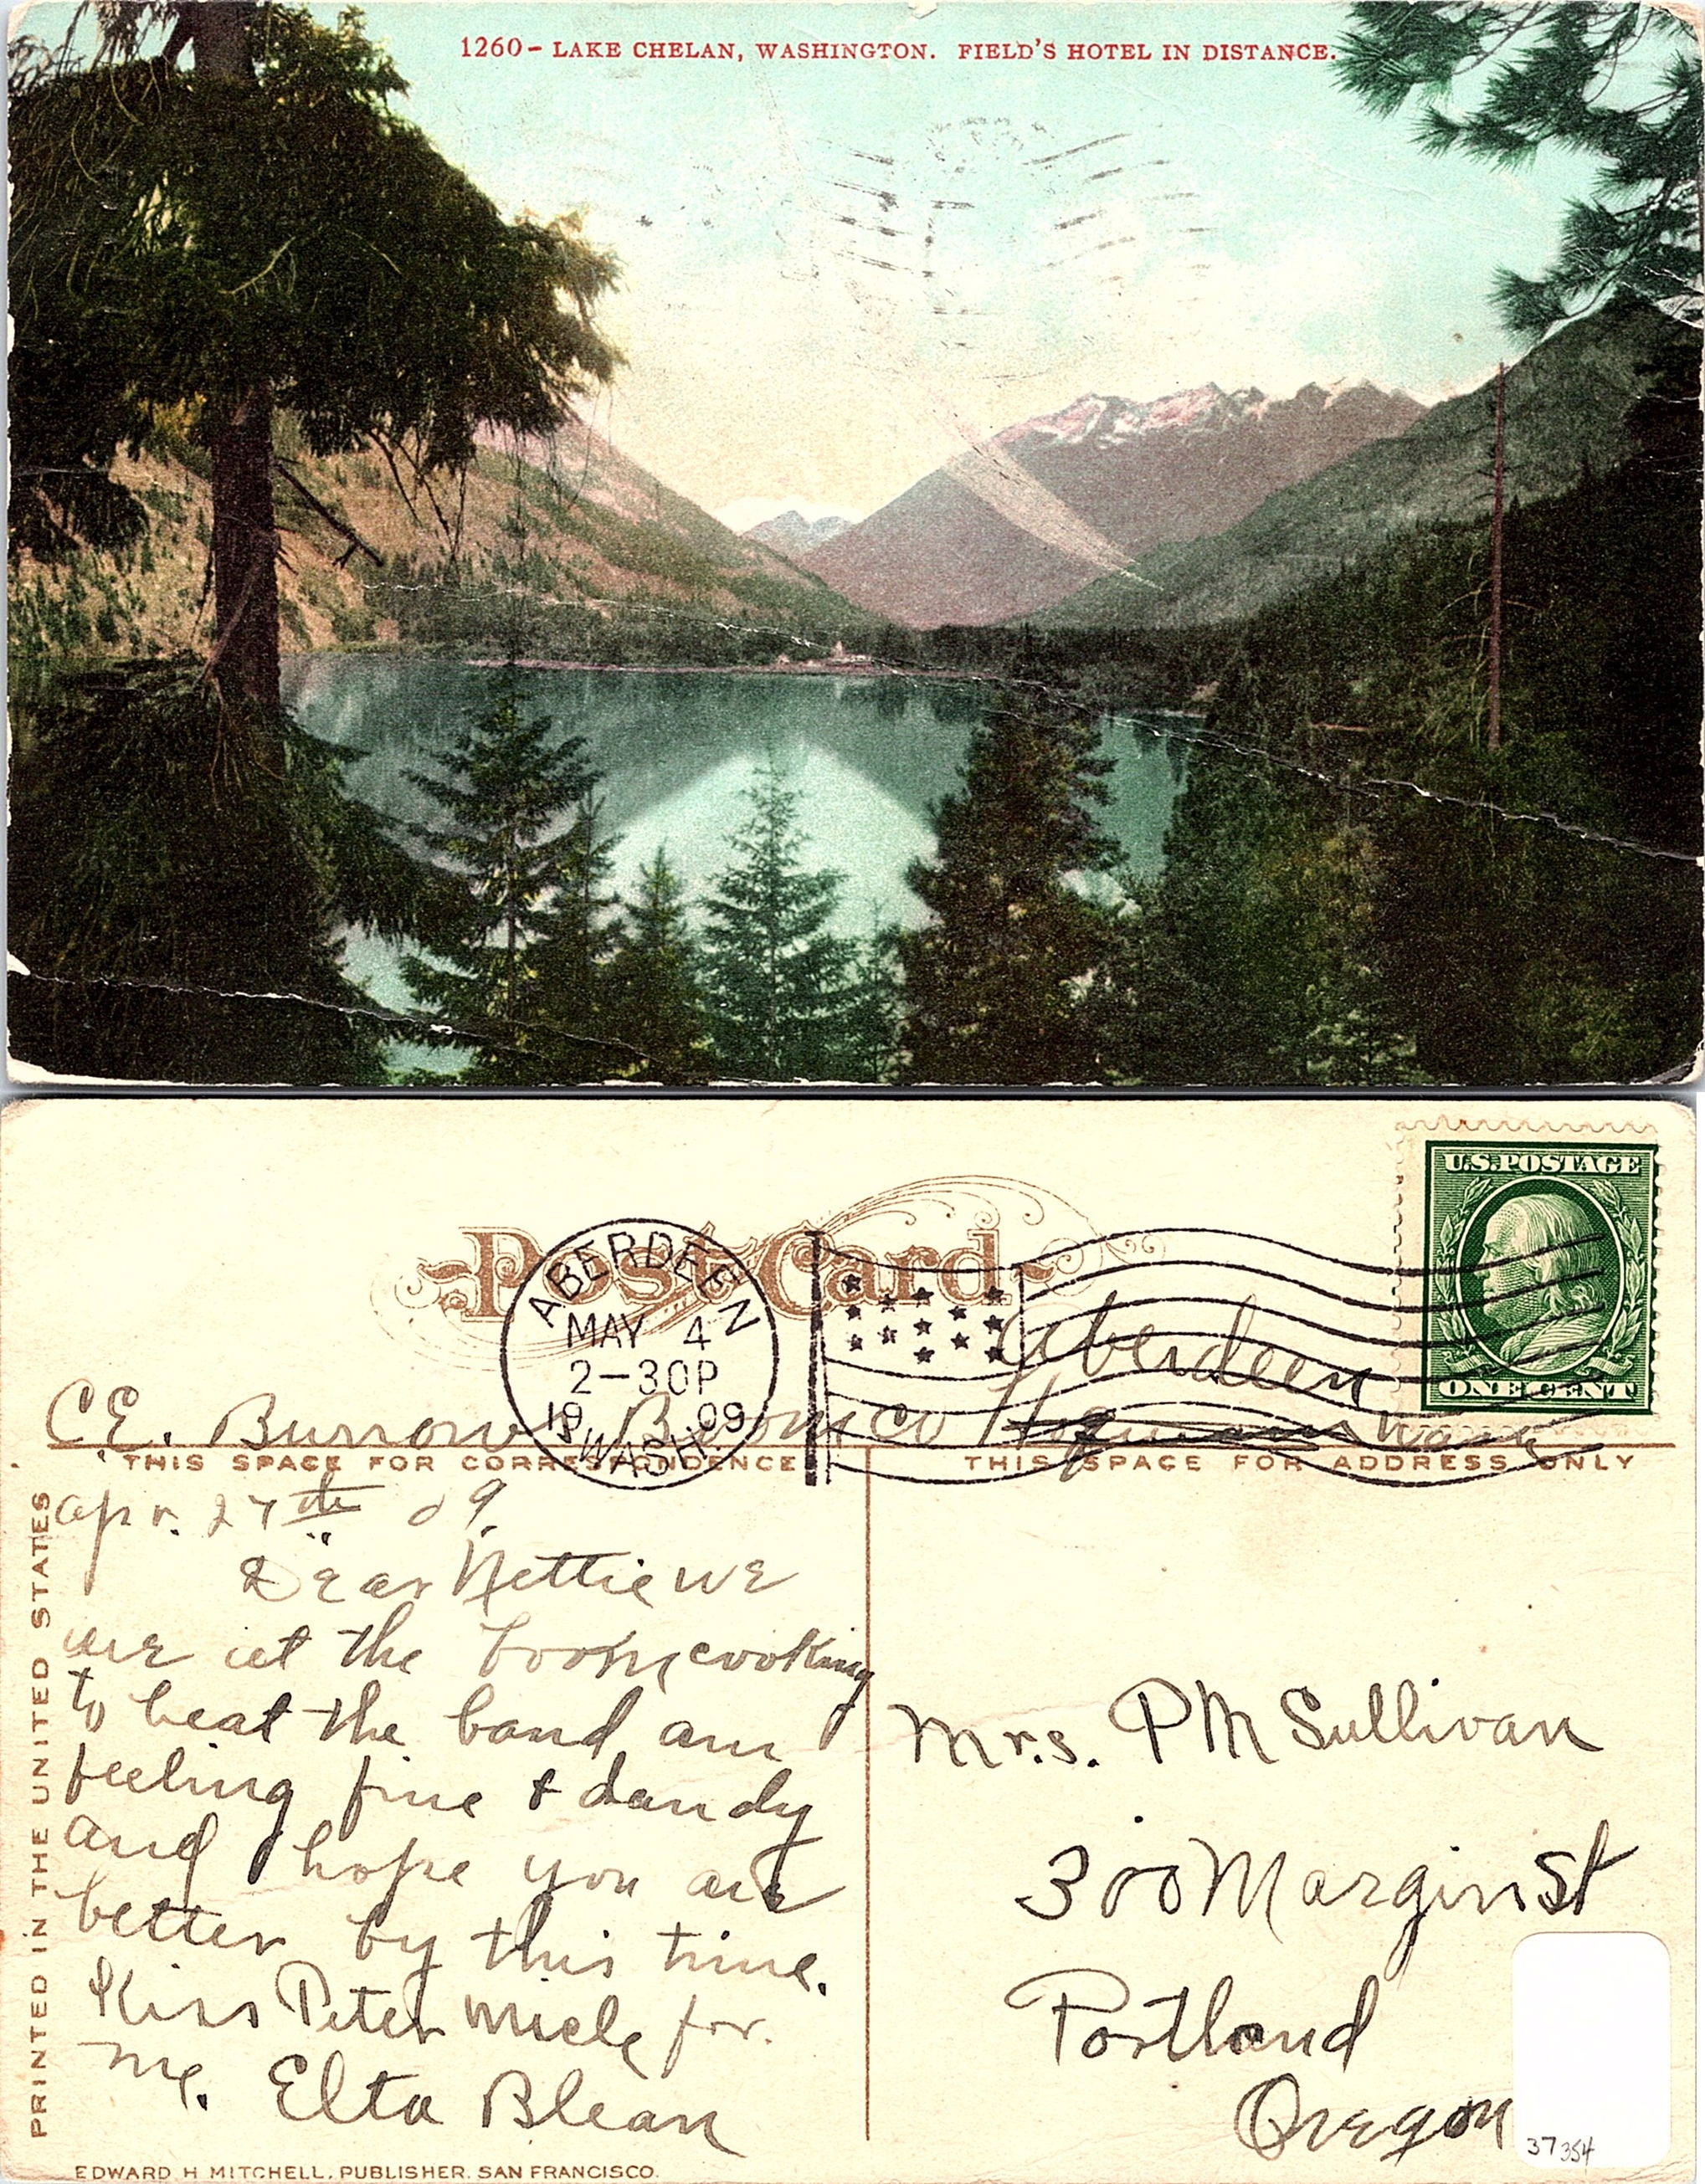 1260- LAKE CHELAN, WASHINGTON. FIELD'S HOTEL IN DISTANCE.
Post Card
U.S. POSTAGE
ONE CENT
ABERDEEN
MAY 4
2-30P
19 09
WASH.
Aberdeen
C.E. Burrows Boom Co Hoquiam Wash
THIS SPACE FOR CORRESPONDENCE
THIS SPACE FOR ADDRESS ONLY
PRINTED IN THE UNITED STATES
Apr. 27th 09.
Dear Nettie we
are at the boom cooking
to beat the band am
feeling fine & dandy
and hope you are
better by this time.
Kiss Peter Micle for
me. Elta Blean
Mrs. P M Sullivan
300 Margin St
Portland
Oregon
37354
EDWARD H MITCHELL, PUBLISHER, SAN FRANCISCO.